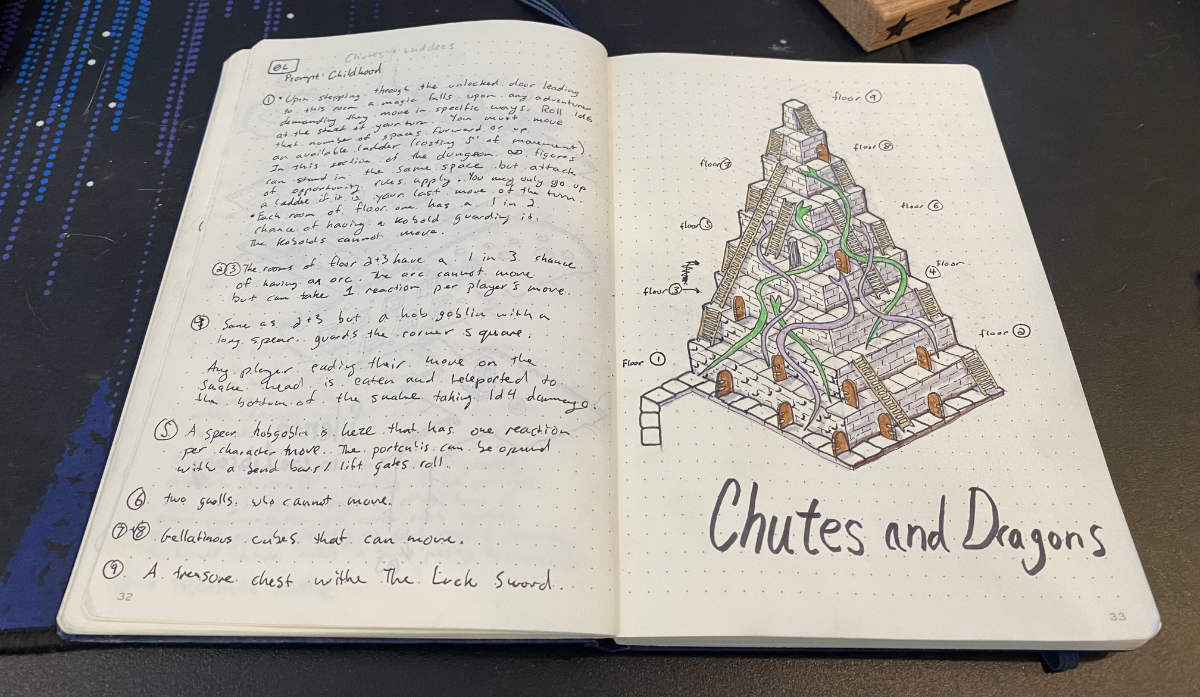 Chutes & Ladders
Prompt: Childhood
① • Upon stepping through the unlocked door leading
to this room a magic falls upon any adventurer
demanding they move in specific ways. Roll 1d6
at the start of your turn. You must move
that number of spaces forward or up
an available ladder (costing 5' of movement)
In this section of the dungeon figures
can stand in the same space but attack
of opportunity rules apply. You may only go up
a ladder if it is your last move of the turn.
• Each room of floor one has a 1 in 2
chance of having a kobold guarding it.
The kobolds cannot move.
② ③ The rooms of floor 2+3 have a 1 in 3 chance
of having an orc. The orc cannot move
but can take 1 reaction per player's move.
④ Same as 2+3 but a hob goblin with a
long spear guards the corner square.
Any player ending their move on the
snake head is eaten and teleported to
the bottom of the snake taking 1d4 damage.
⑤ A spear hobgoblin is here that has one reaction
per character move. The portculis can be opened
with a bend bars/lift gates roll.
⑥ two gnolls who cannot move.
⑦+⑧ Gellatinous cubes that can move.
⑨ A treasure chest withe The Luck Sword.
32
floor ⑨
floor ⑧
floor ⑦
floor ⑥
floor ⑤
④ floor
floor ③
floor ②
Floor ①
Chutes and Dragons
33